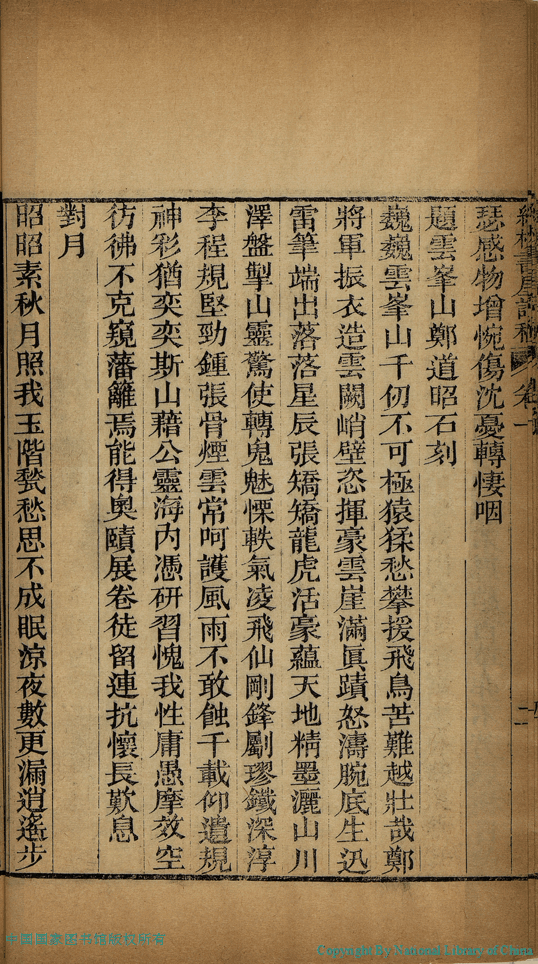 瑟感物增惋傷沈憂轉悽咽
題雲峯山鄭道昭石刻
巍巍雲峯山千仞不可極猿猱愁攀援飛鳥苦難越壯哉鄭
將軍振衣造雲闕峭壁恣揮豪雲崖滿眞蹟怒濤腕底生迅
雷筆端出落落星辰張矯矯龍虎活豪蘊天地精墨灑山川
澤盤掣山靈驚使轉鬼魅慄軼氣凌飛仙剛鋒劚璆鐵深淳
李程規堅勁鍾張骨煙雲常呵護風雨不敢蝕千載仰遺規
神彩猶奕奕斯山藉公靈海內憑研習愧我性庸愚摩效空
彷彿不克窺藩籬焉能得奧賾展卷徒留連抗懷長歎息
對月
昭昭素秋月照我玉階甃愁思不成眠涼夜數更漏逍遙步
中國國家图书馆版权所有
Copyright By National Library of China